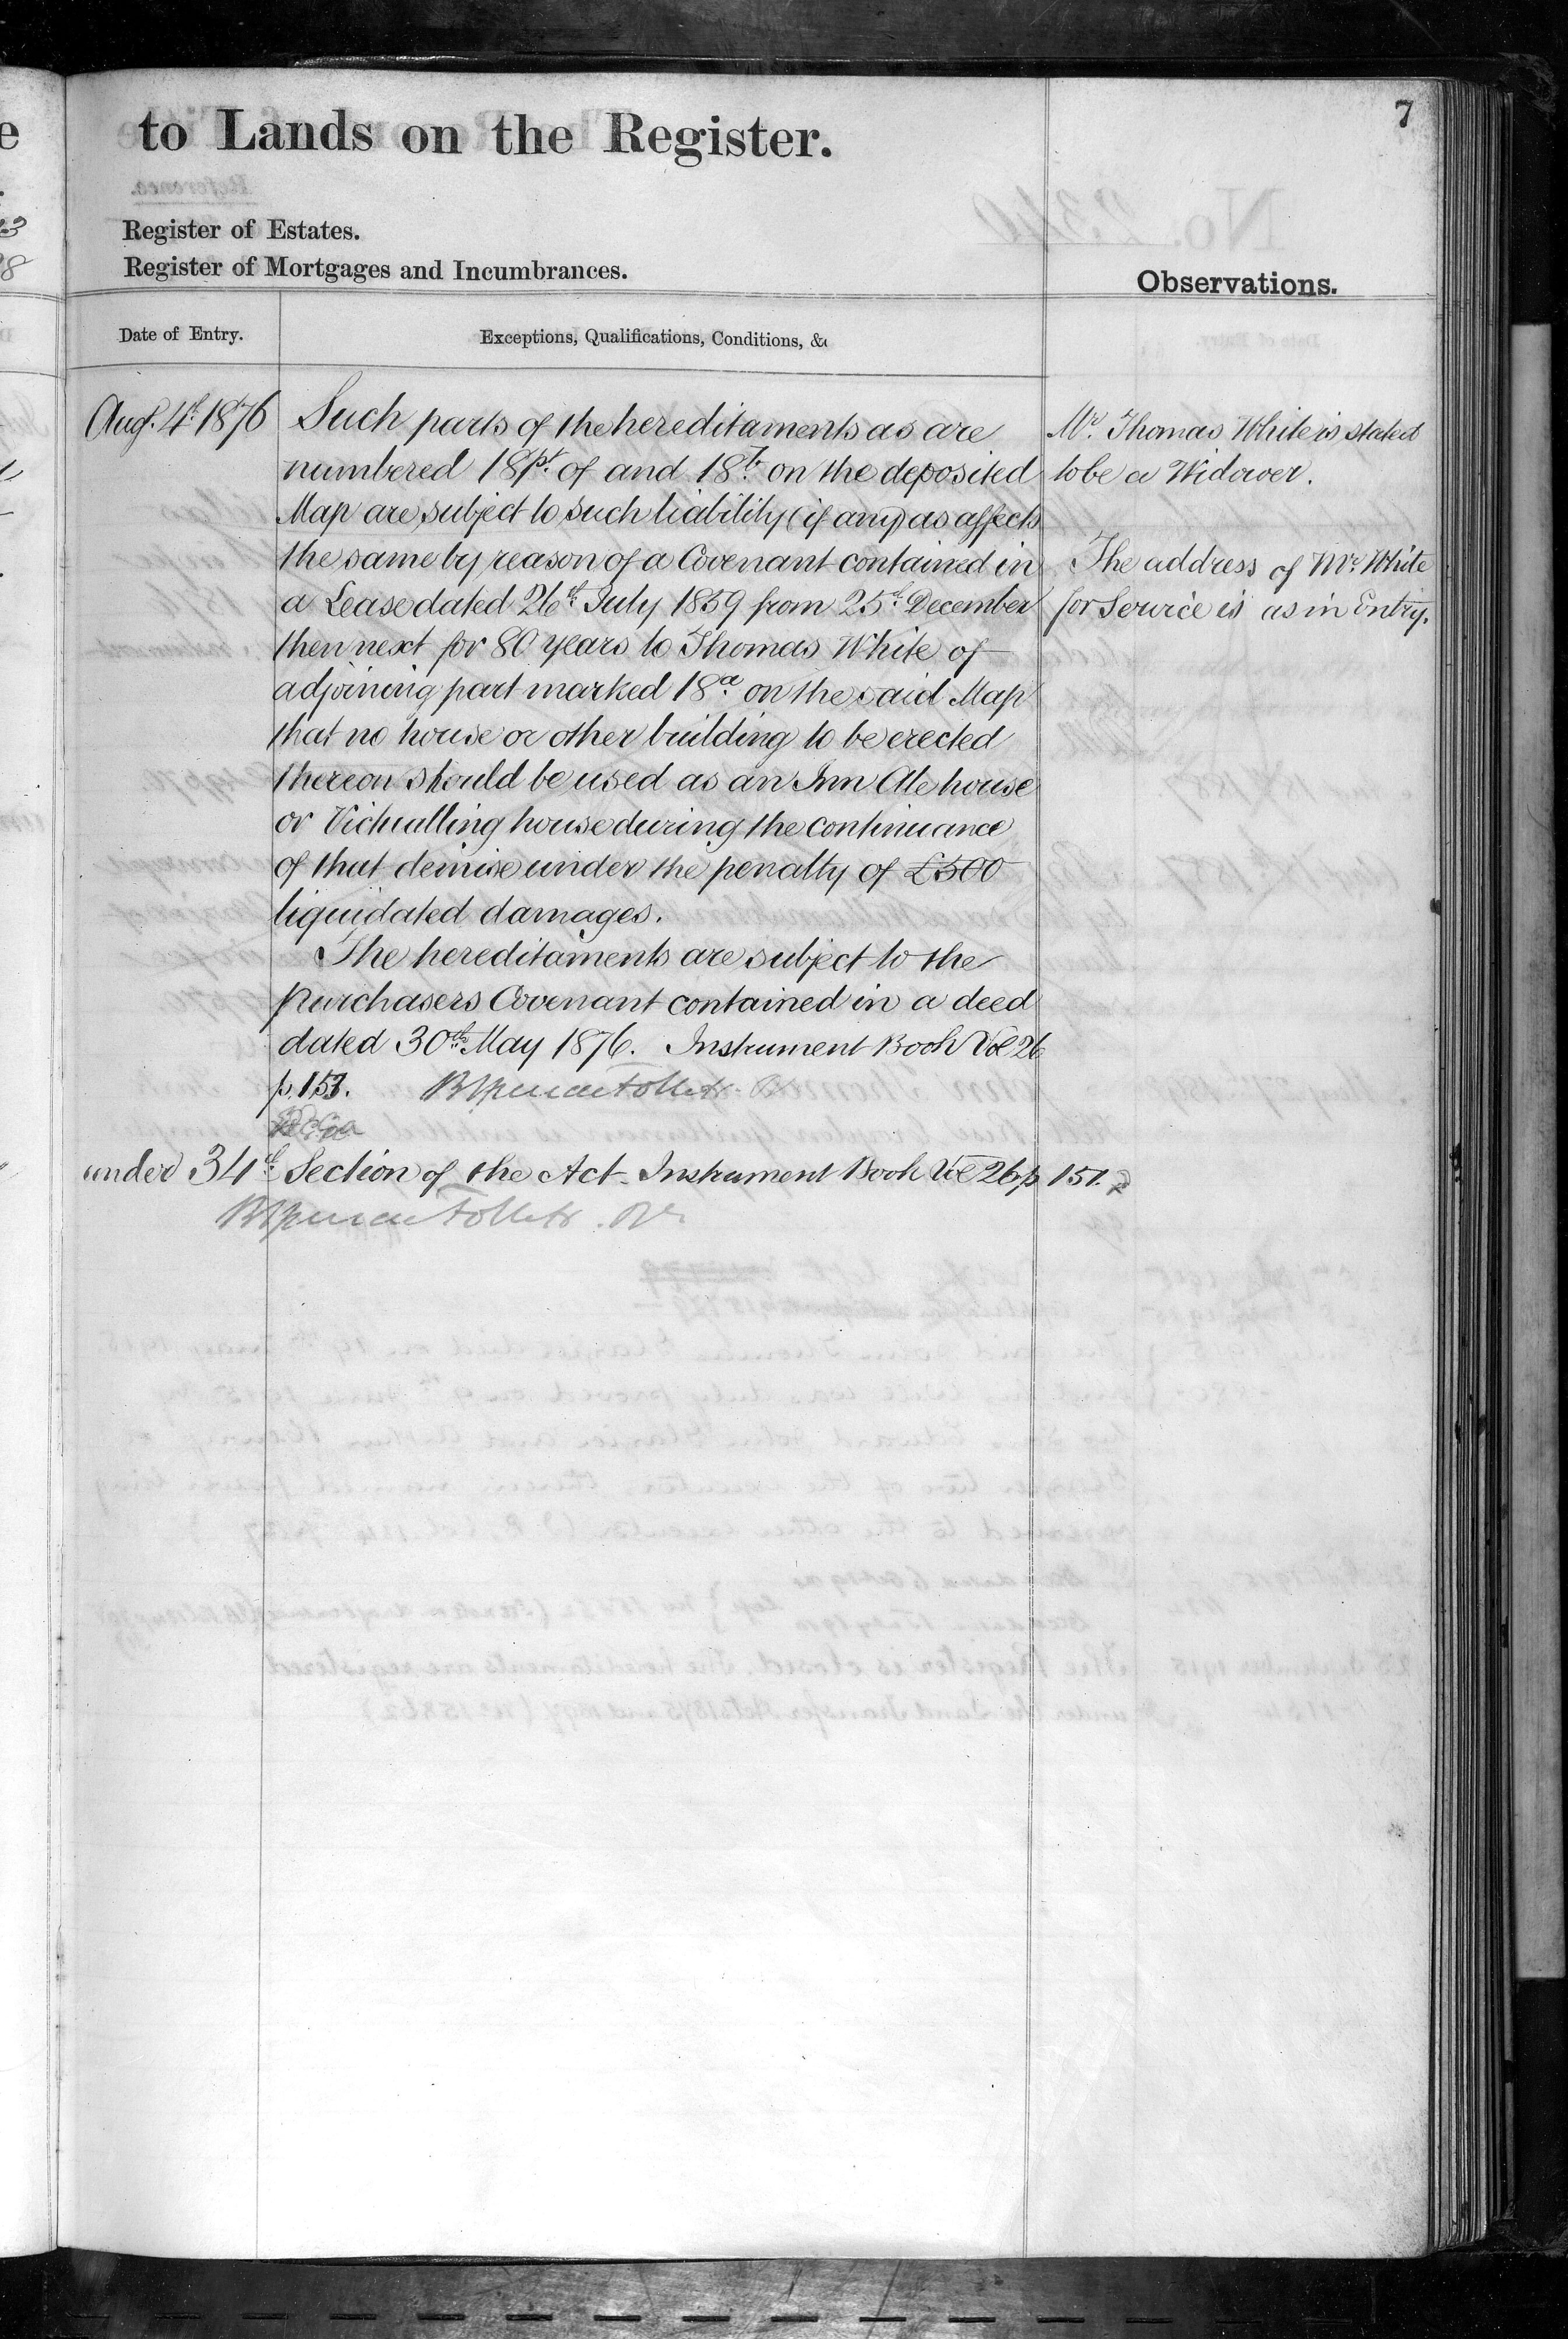 7
to Lands on the Register.
Register of Estates.
Register of Mortgages and Incumbrances.
Observations.
Date of Entry.
Exceptions, Qualifications, Conditions, &c
Augt. 4th 1876
Such parts of the hereditaments as are
numbered 18pt. of and 18b. on the deposited
Map are subject to such liability (if any) as affects
the same by reason of a Covenant contained in
a Lease dated 26th July 1859 from 25th December
then next for 80 years to Thomas White of
adjoining part marked 18a. on the said Map
that no house or other building to be erected
thereon should be used as an Inn Ale house
or Victualling house during the continuance
of that demise under the penalty of £500
liquidated damages.
The hereditaments are subject to the
Purchasers Covenant contained in a deed
dated 30th May 1876. Instrument Book Vol 26
p. 153.
under 34th Section of the Act. Instrument Book Vol 26 p 151.
Mr. Thomas White is stated
to be a Widower.
The address of Mr. White
for Service is as in Entry.